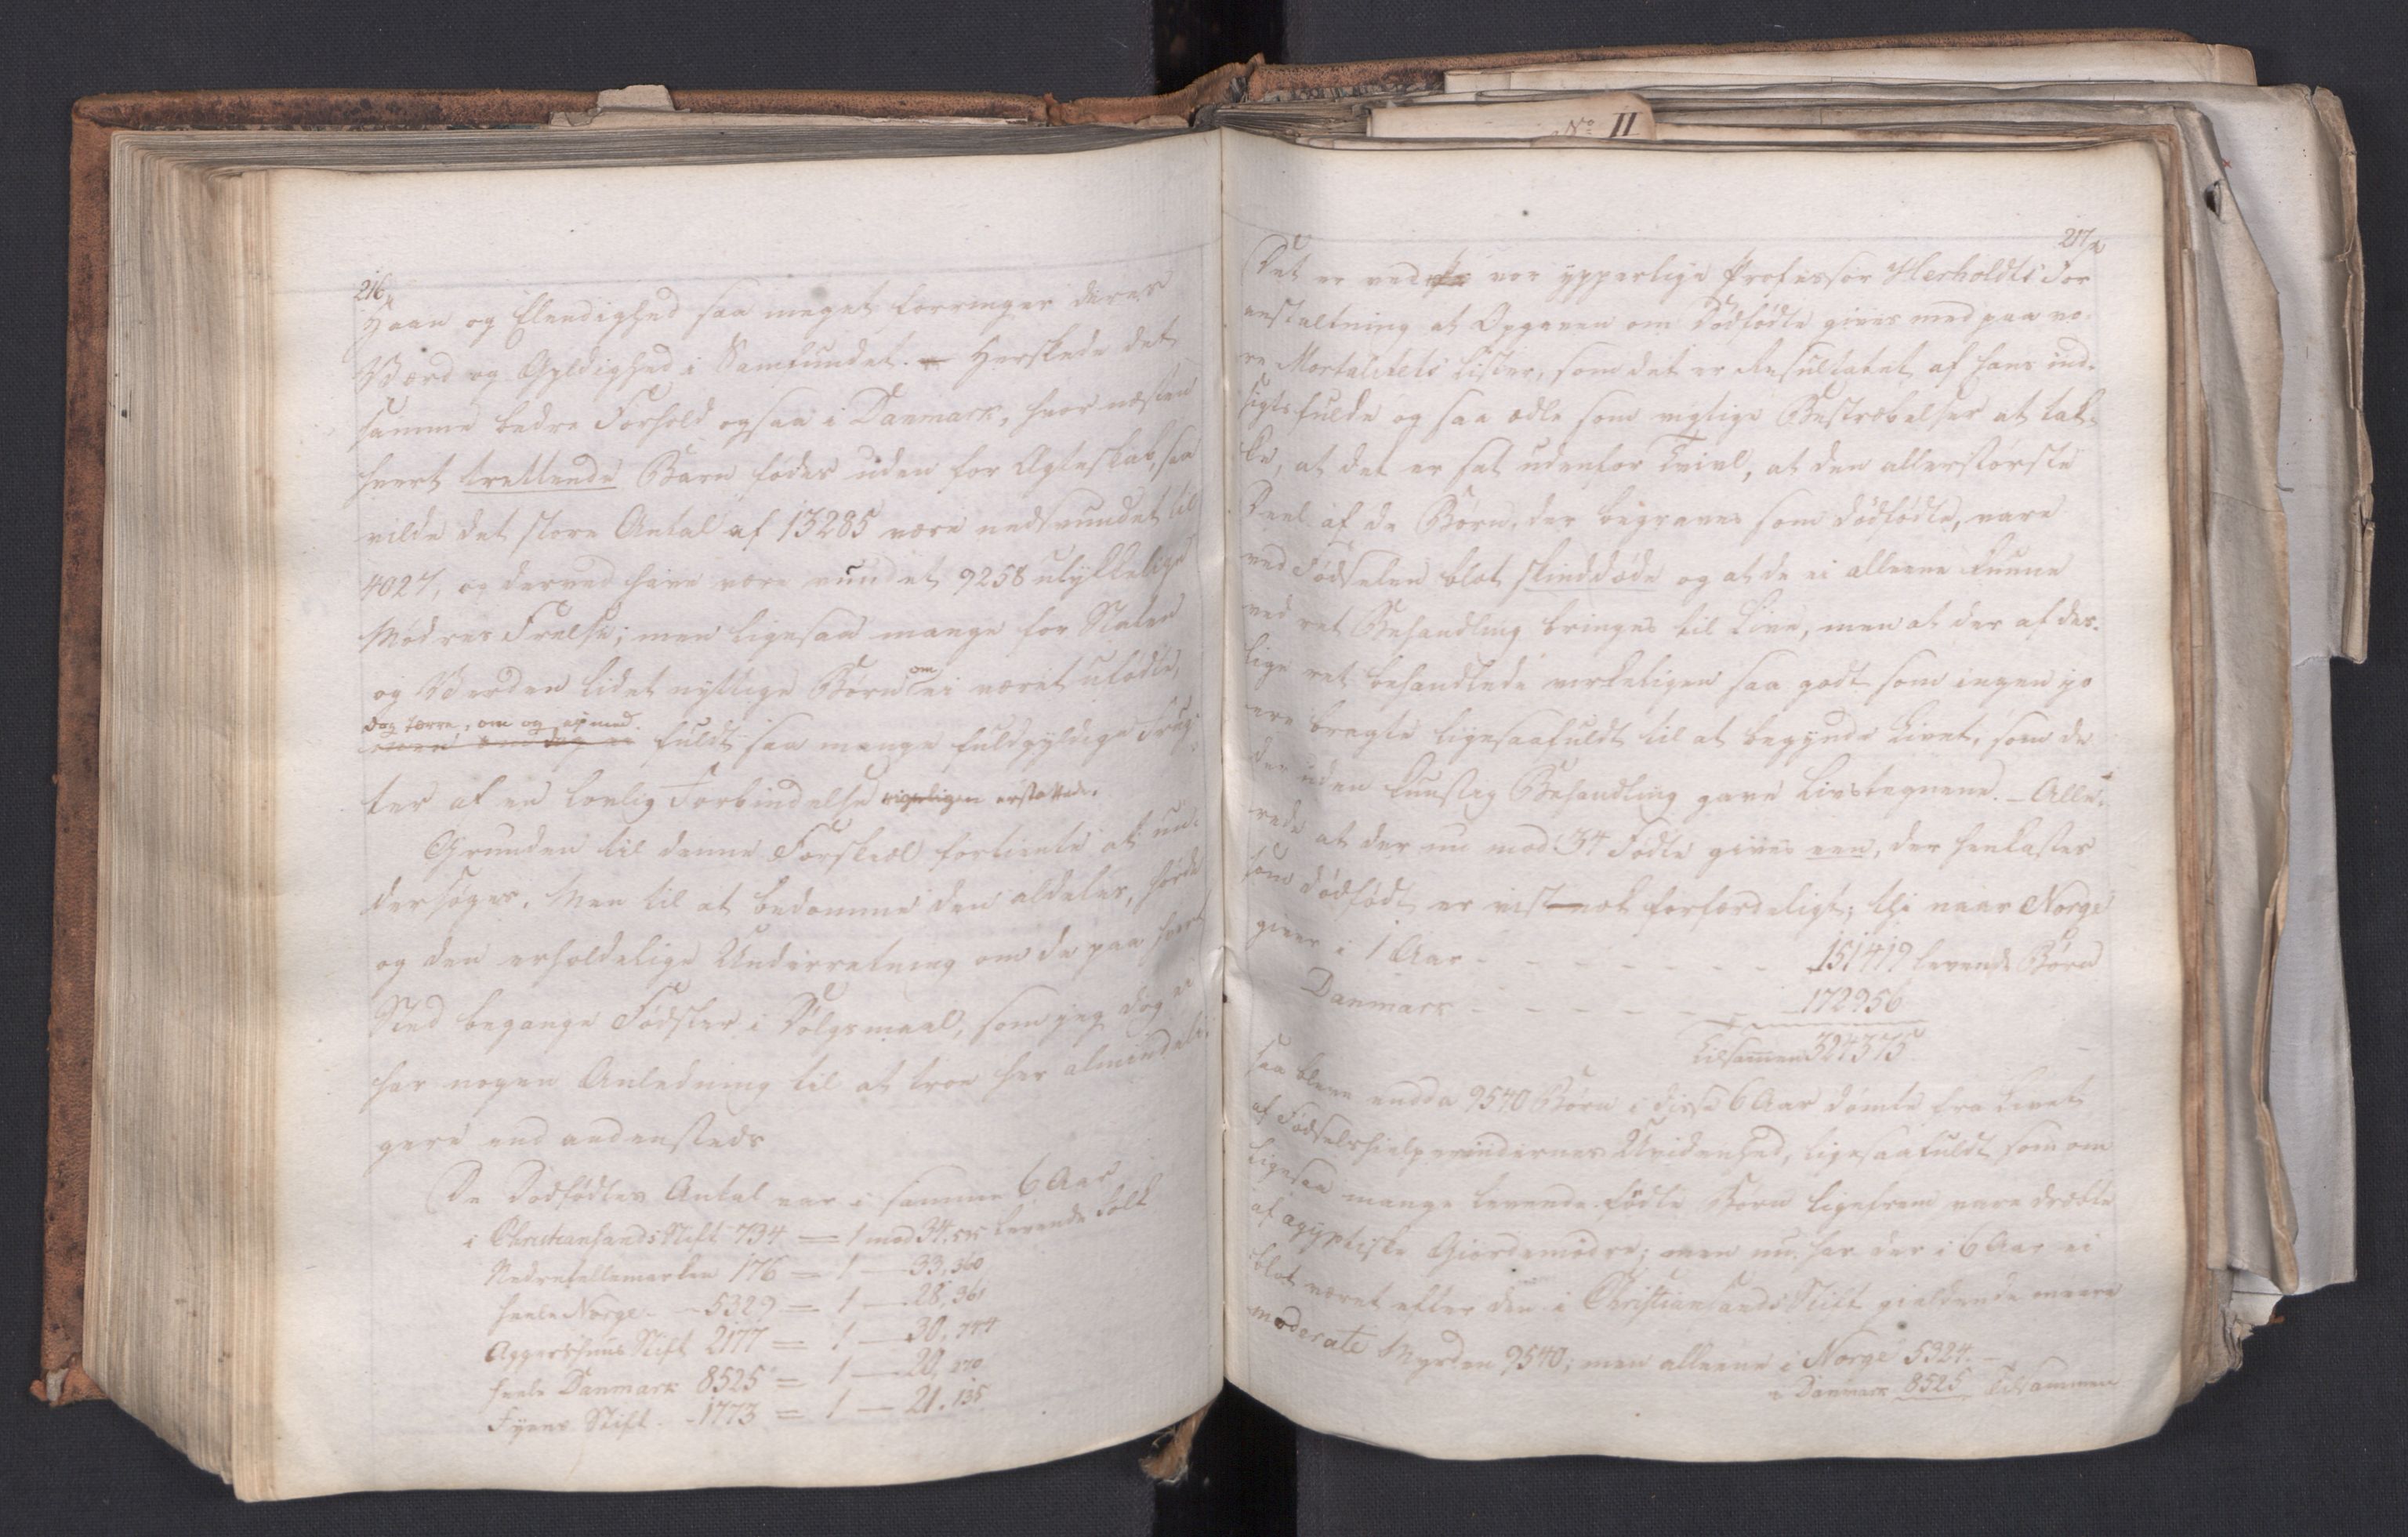 216
Haan og Elendighed saa meget forringer deres
Værd og Gyldighed i Samfundet. - Herskede det
samme bedre Forhold ogsaa i Danmark, hvor næsten
hvert trettende Barn fødes uden for Ægteskab, saa
vilde det store Antal af 13285 være nedsvundet til
4027, og derved have være vundet 9258 ulykkelige
Mødres Frelse; men ligesaa mange for Staten
og Verden lidet nyttige Børn om ei været ufødte,
dog færre, om og ei med
fuldt saa mange fuldgyldige Frug-
ter af en lovlig Forbindelse rigeligen erstattede.
Grunden til denne Forskiæl fortiente at un-
dersøges. Men til at bedømme den aldeles, hørde
og den erholdelige Underretning om de paa hvert
Sted begangne Fødsler i Dølgsmaal, som jeg dog ei
har nogen Anledning til at troe her almindeli-
gere end andensteds
De Dødfødtes Antal var i samme 6 Aar
i Christiansands Stift 734 = 1 mod 34,515 levende Født
Nedretellemarken 176 = 1 — 33,360
heele Norge - - 5329 = 1 — 28,361
Aggershuus Stift 2177 = 1 — 30,744
heele Danmark 8525 = 1 — 20,270
Fyens Stift - - 1773 = 1 — 21,135
No II
217
Det er ved vor ypperlige Professor Herholdts For
anstaltning at Opgaven om Dødfødte gives med paa vo-
re Mortalitets Lister, som det er Resultatet af hans ind-
sigtsfulde og saa ædle som vigtige Bestræbelser at tak-
ke, at det er sat udenfor Tvivl, at den allerstørste
Deel af de Børn, der begraves som dødfødte, vare
ved Fødselen blot skinddøde og at de ei alleene kunne
ved ret Behandling bringes til Live, men at der af des-
lige ret behandlede virkeligen saa godt som ingen jo
ere bragte ligesaafuldt til at begynde Livet, som de
der uden kunstig Behandling gave Livstegnene. - Alle-
rede at der nu mod 34 Fødte gives een, der henkastes
som dødfødt er vist-nok forfærdeligt; thi naar Norge
giver i 1 Aar - - - - - - - 151419 levende Børn
Danmark - - - - - - - 172956
tilsammen 324375
saa bleve endda 9540 Børn i disse 6 Aar dømte fra Livet
af Fødselshielperindernes Uvidenhed, ligesaafuldt som om
ligesaa mange levende fødte Børn ligefrem vare dræbte
af ægyptiske Giordemødre; men nu har der i 6 Aar ei
blot været efter den i Christiansands Stift gieldende meere
moderate Myrden 9540; men alleene i Norge 5324. —
i Danmark 8525 tilsammen